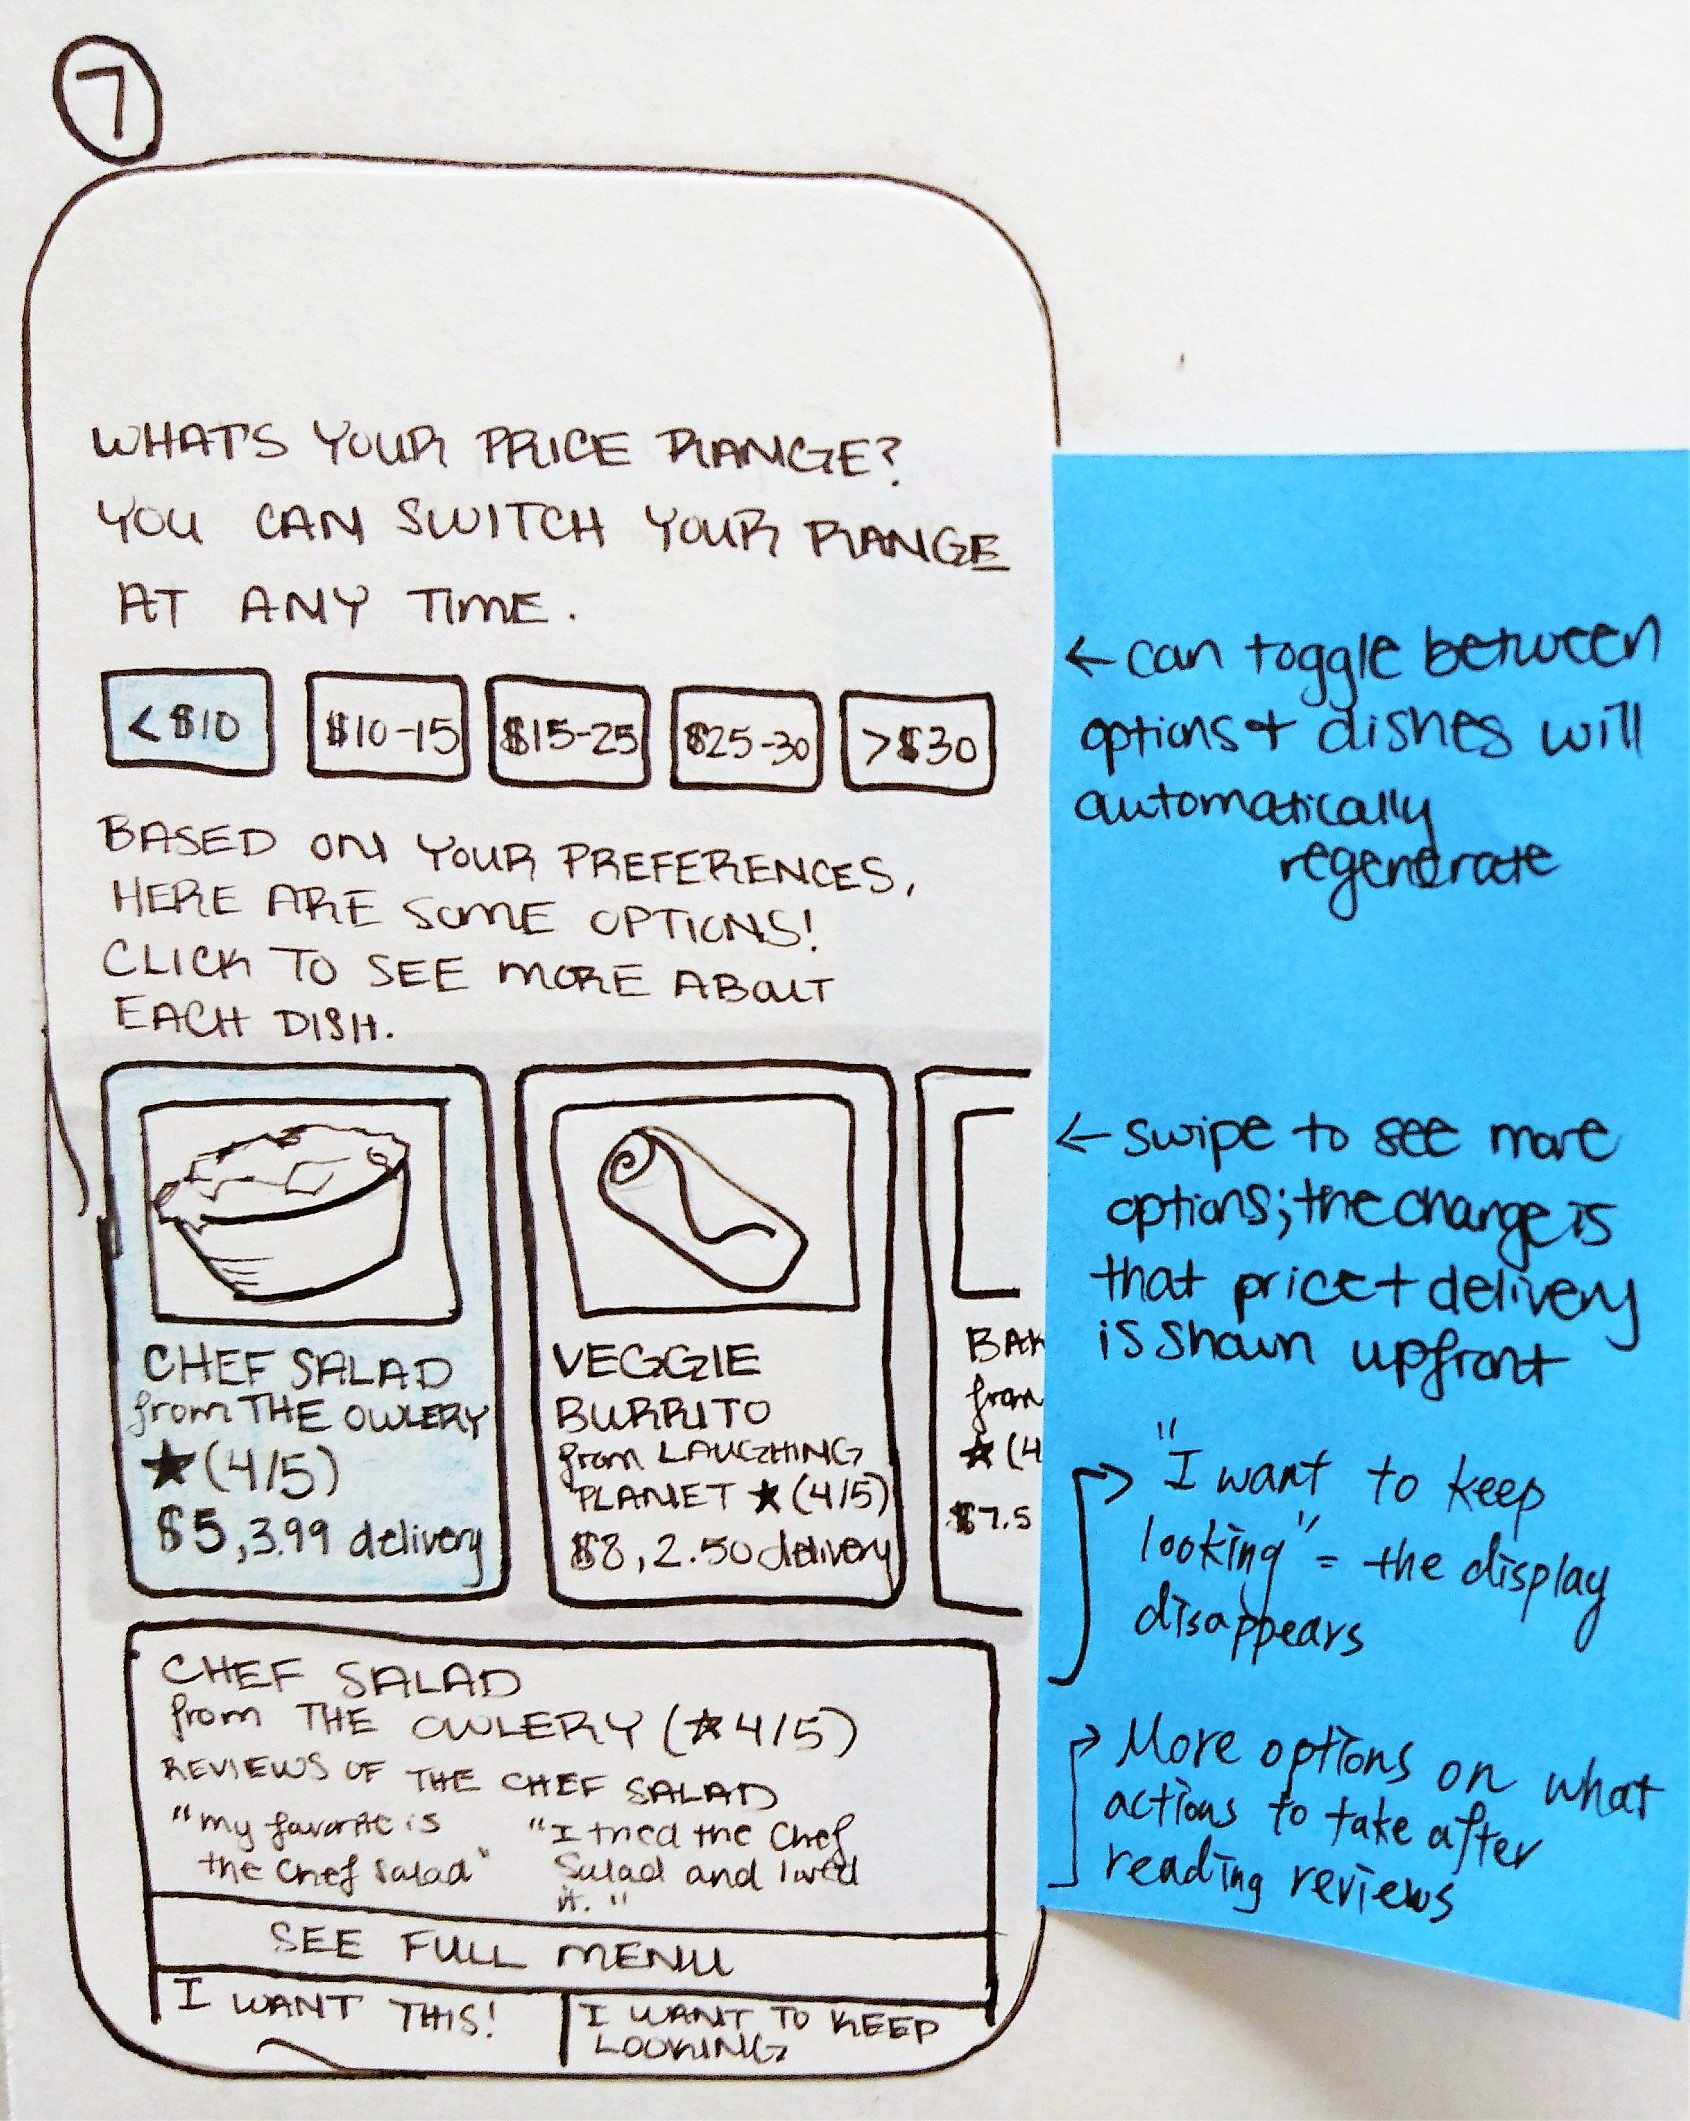 7
WHAT'S YOUR PRICE RANGE?
YOU CAN SWITCH YOUR RANGE
AT ANY TIME.
<$10
$10-15
$15-25
$25-30
>$30
BASED ON YOUR PREFERENCES,
HERE ARE SOME OPTIONS!
CLICK TO SEE MORE ABOUT
EACH DISH.
CHEF SALAD
from THE OWLERY
★(4/5)
$5, 3.99 delivery
VEGGIE
BURRITO
from LAUGHING
PLANET ★(4/5)
$8, 2.50 delivery
BAK
from
★(4
$7.5
CHEF SALAD
from THE OWLERY (★4/5)
REVIEWS OF THE CHEF SALAD
"my favorite is
the Chef Salad"
"I tried the Chef
Salad and loved
it."
SEE FULL MENU
I WANT THIS!
I WANT TO KEEP
LOOKING
← can toggle between
options + dishes will
automatically
regenerate
← swipe to see more
options; the change is
that price + delivery
is shown upfront
"I want to keep
looking" = the display
disappears
More options on what
actions to take after
reading reviews